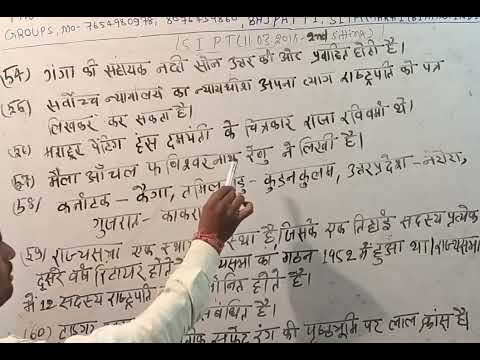 GROUPS, MO- 7654980978,
SI PT (11.03.2018-2nd sitting)
(54) गंगा की सहायक नदी सोन उत्तर की ओर प्रवाहित होती है।
सर्वोच्च न्यायालय का न्यायधीश अपना त्याग राष्ट्रपति को पत्र
लिखकर कर सकता है।
मशहूर पेंटिंग हंस दमयंती के चित्रकार राजा रवि वर्मा थे।
(57) मैला आँचल फणिश्वर नाथ रेणु ने लिखी है।
(58) कर्नाटक - कैगा, - कुडनकुलम, उत्तर प्रदेश - नरोरा,
गुजरात - काकरा
(59) राज्यसभा एक है जिसके एक तिहाई सदस्य प्रत्येक
दूसरे वर्ष रिटायर होते का गठन 1952 में हुआ था। राज्यसभा
में 12 सदस्य राष्ट्रपति होते हैं।
संबंधित है।
(60) सफेद रंग की पृष्ठभूमि पर लाल क्रॉस है।